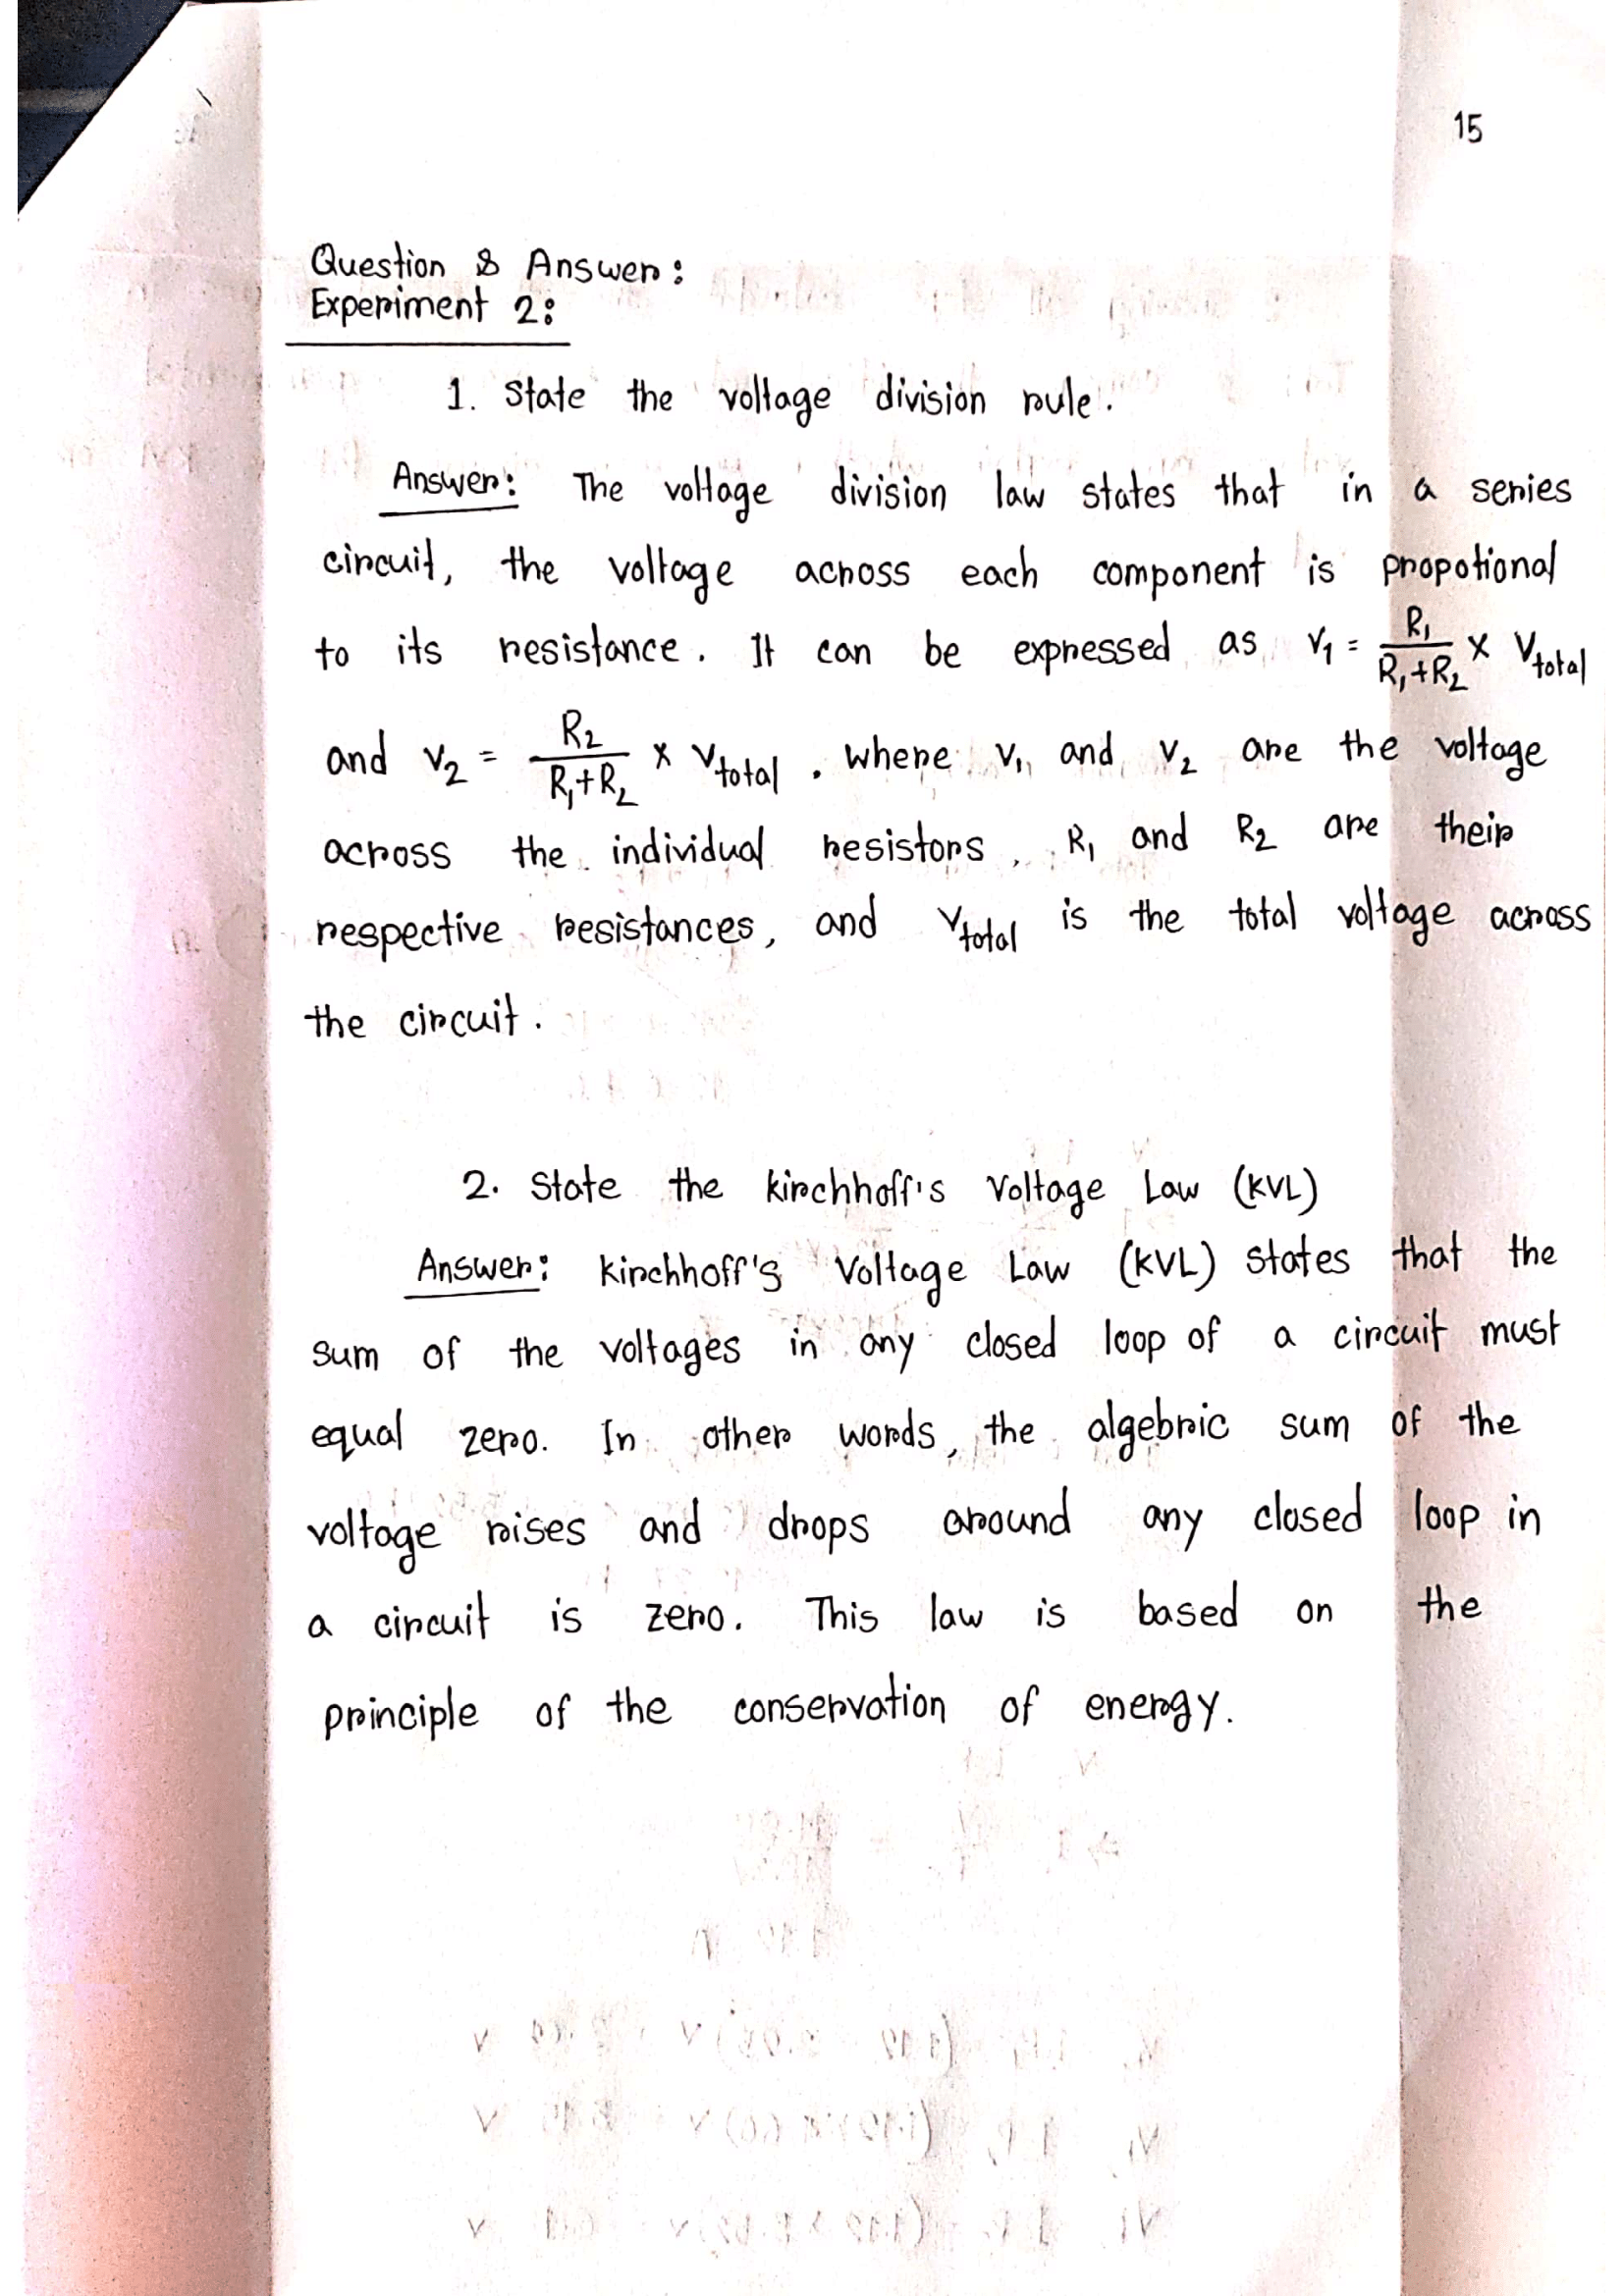 15
Question & Answer:
Experiment 2:
1. State the voltage division rule.
Answer: The voltage division law states that in a series
circuit, the voltage across each component is propotional
to its resistance. It can be expressed as V₁ = R₁/(R₁+R₂) × V_total
and V₂ = R₂/(R₁+R₂) × V_total. where V₁, and V₂ are the voltage
across the individual resistors, R₁ and R₂ are their
respective resistances, and V_total is the total voltage across
the circuit.
2. State the kirchhoff's Voltage Law (KVL)
Answer: kirchhoff's Voltage Law (KVL) states that the
sum of the voltages in any closed loop of a circuit must
equal zero. In other words, the algebric sum of the
voltage rises and drops around any closed loop in
a circuit is zero. This law is based on the
principle of the conservation of energy.